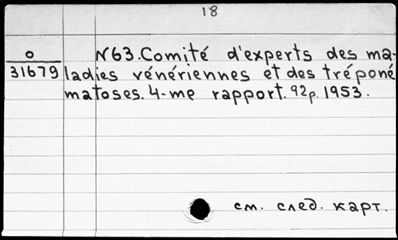 18
О N63. Comité d'experts des ma-
31679 ladies vénériennes et des tréponé
matoses. 4-me rapport. 92p. 1953.
см. след. карт.